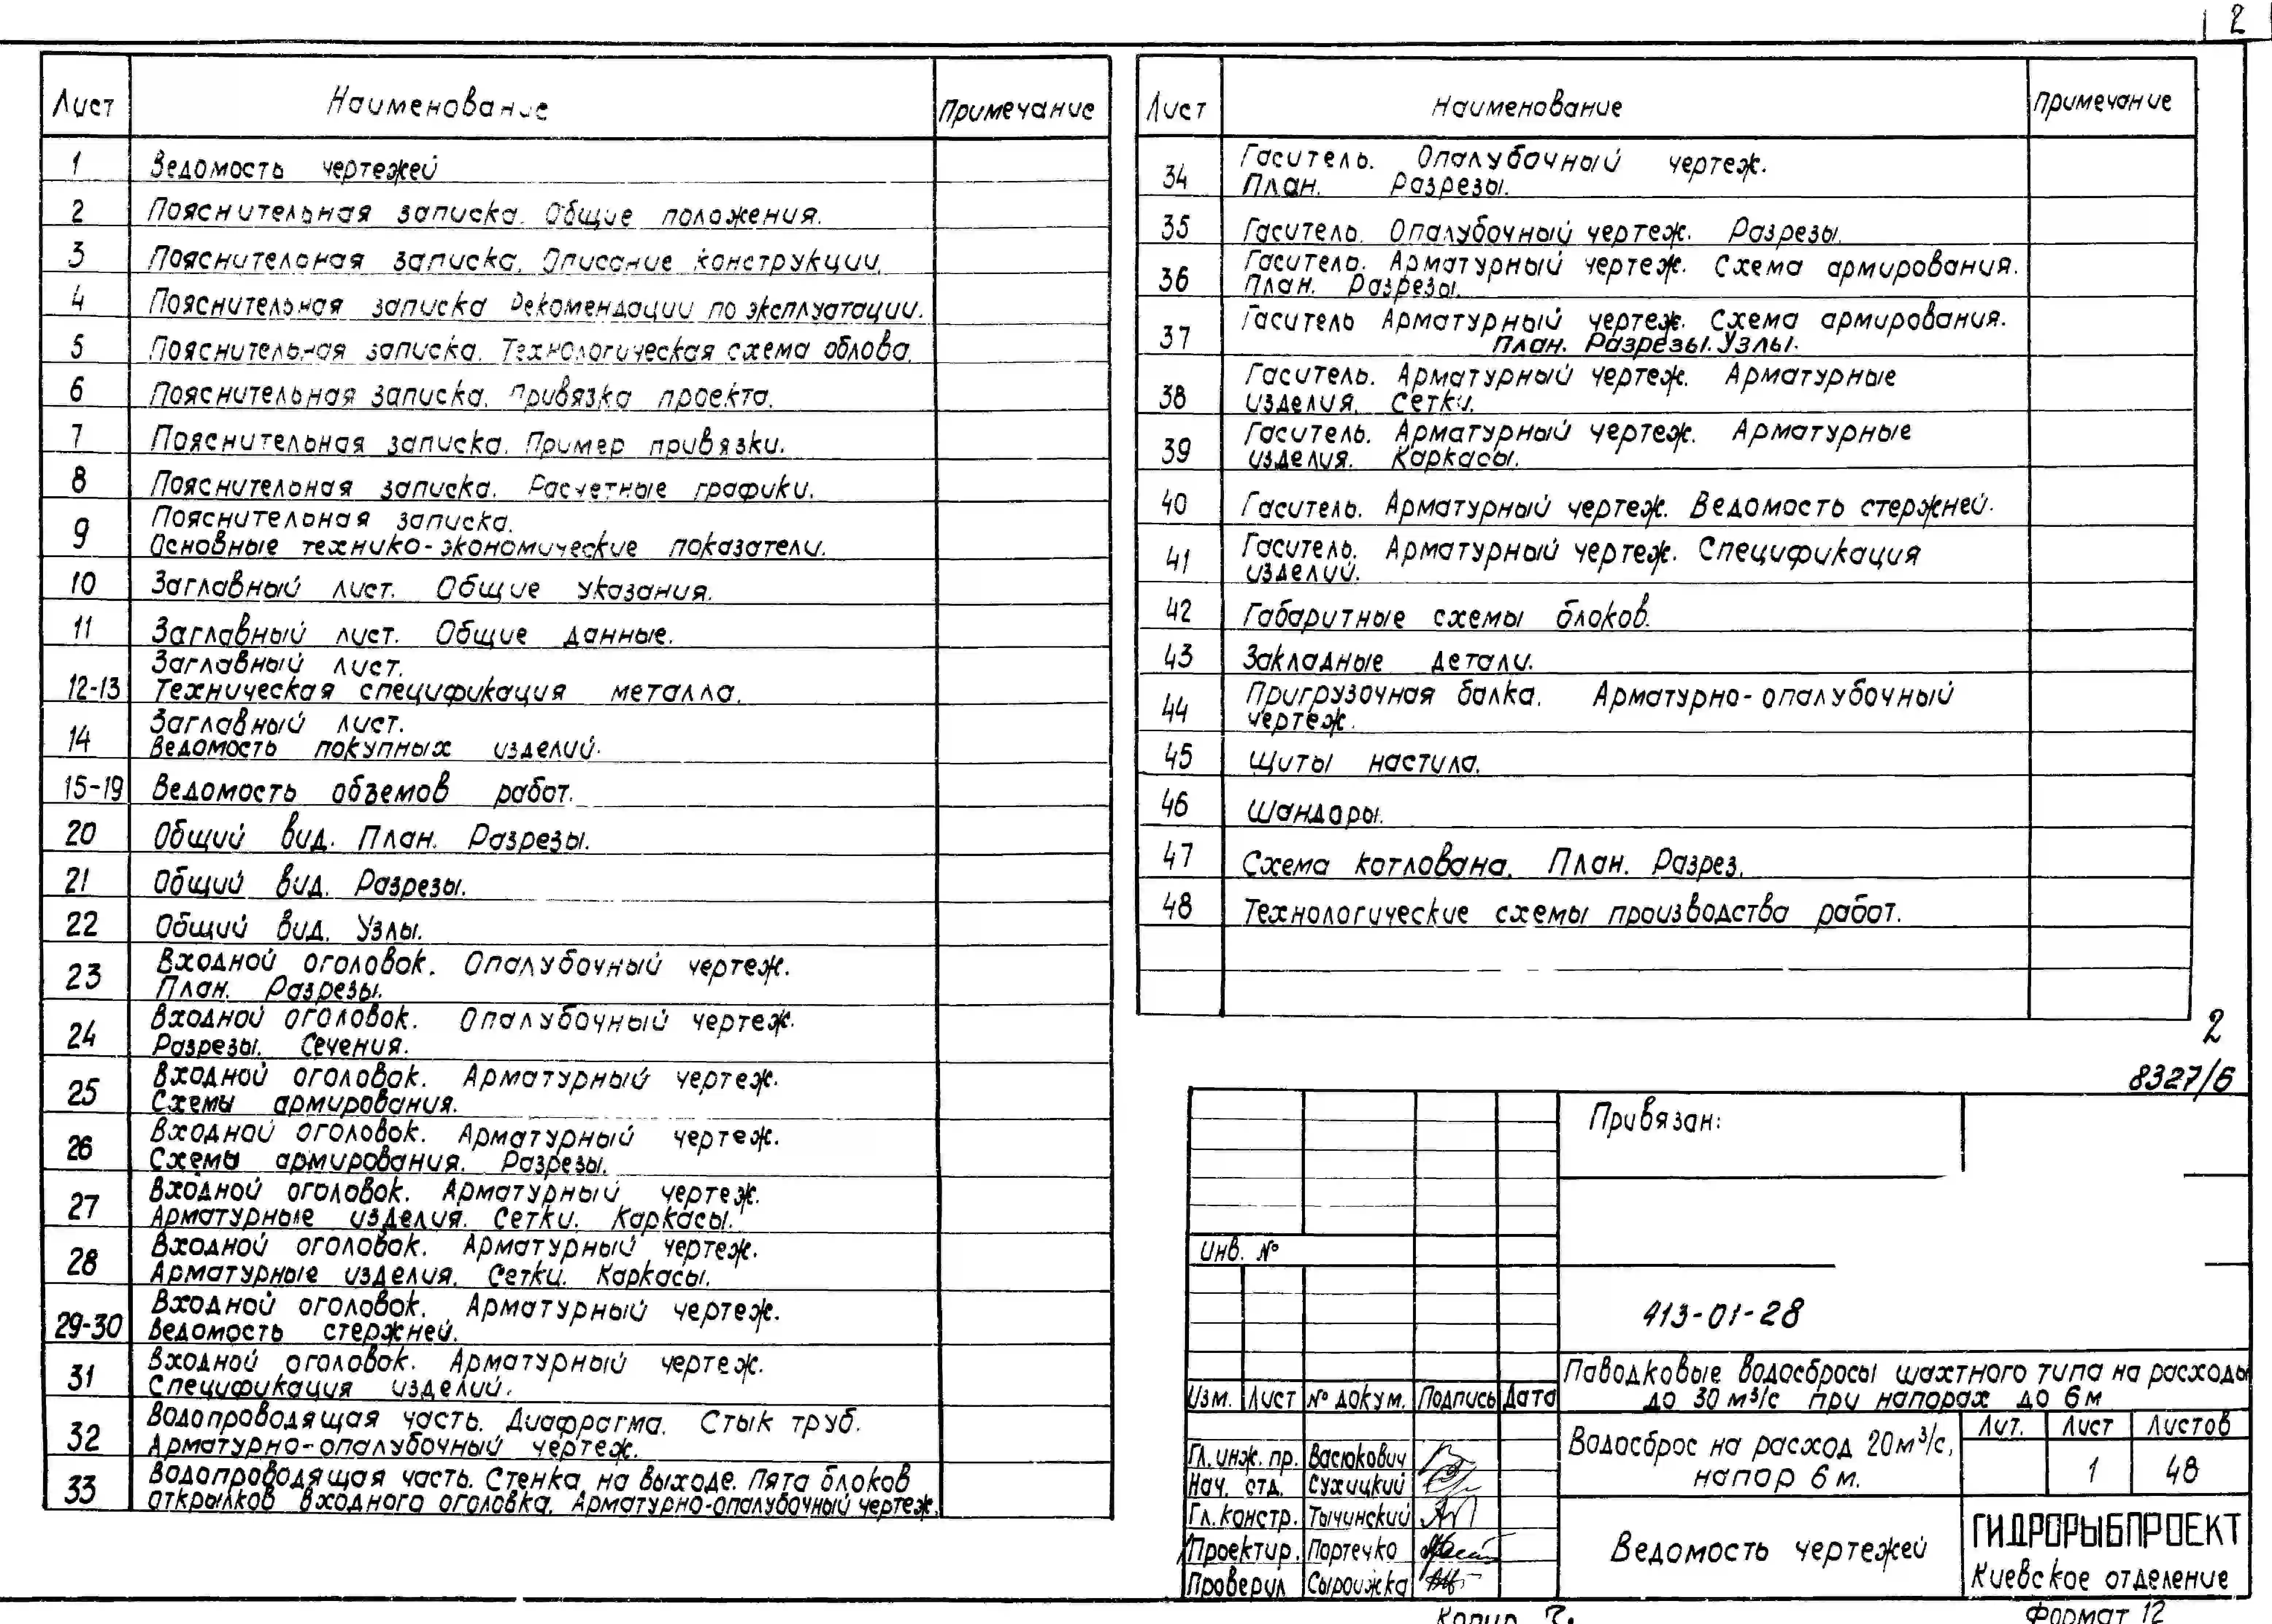 2
Лист Наименование Примечание
1 Ведомость чертежей
2 Пояснительная записка. Общие положения.
3 Пояснительная записка. Описание конструкции.
4 Пояснительная записка Рекомендации по эксплуатации.
5 Пояснительная записка. Технологическая схема облова.
6 Пояснительная записка. Привязка проекта.
7 Пояснительная записка. Пример привязки.
8 Пояснительная записка. Расчетные графики.
9 Пояснительная записка.
Основные технико-экономические показатели.
10 Заглавный лист. Общие указания.
11 Заглавный лист. Общие данные.
12-13 Заглавный лист.
Техническая спецификация металла.
14 Заглавный лист.
Ведомость покупных изделий.
15-19 Ведомость обземов работ.
20 Общий вид. План. Разрезы.
21 Общий вид. Разрезы.
22 Общий вид. Узлы.
23 Входной оголовок. Опалубочный чертеж.
План. Разрезы.
24 Входной оголовок. Опалубочный чертеж.
Разрезы. Сечения.
25 Входной оголовок. Арматурный чертеж.
Схемы армирования.
26 Входной оголовок. Арматурный чертеж.
Схемы армирования. Разрезы.
27 Входной оголовок. Арматурный чертеж.
Арматурные изделия. Сетки. Каркасы.
28 Входной оголовок. Арматурный чертеж.
Арматурные изделия. Сетки. Каркасы.
29-30 Входной оголовок. Арматурный чертеж.
Ведомость стержней.
31 Входной оголовок. Арматурный чертеж.
Спецификация изделий.
32 Водопроводящая часть. Диафрагма. Стык труб.
Арматурно-опалубочный чертеж.
33 Водопроводящая часть. Стенка на выходе. Пята блоков
открылков входного оголовка. Арматурно-опалубочный чертеж.
Лист Наименование Примечание
34 Гаситель. Опалубочный чертеж.
План. Разрезы.
35 Гаситель. Опалубочный чертеж. Разрезы.
36 Гаситель. Арматурный чертеж. Схема армирования.
План. Разрезы.
37 Гаситель Арматурный чертеж. Схема армирования.
План. Разрезы. Узлы.
38 Гаситель. Арматурный чертеж. Арматурные
изделия. Сетки.
39 Гаситель. Арматурный чертеж. Арматурные
изделия. Каркасы.
40 Гаситель. Арматурный чертеж. Ведомость стержней.
41 Гаситель. Арматурный чертеж. Спецификация
изделий.
42 Габаритные схемы блоков.
43 Закладные детали.
44 Пригрузочная балка. Арматурно-опалубочный
чертеж.
45 Щиты настила.
46 Шандоры.
47 Схема котлована. План. Разрез.
48 Технологические схемы производства работ.
2
8327/6
Привязан:
Инв. №
413-01-28
Паводковые водосбросы шахтного типа на расходы
до 30 м³/с при напорах до 6 м
Изм. Лист № докум. Подпись Дата
Водосброс на расход 20м³/с,
напор 6 м.
Лит. Лист Листов
1 48
Гл. инж. пр. Васюкович
Нач. отд. Сухицкий
Гл. констр. Тычинский
Проектир. Портечко
Проверил Сыроижка
Ведомость чертежей
ГИДРОРЫБПРОЕКТ
Киевское отделение
Копир
Формат 12